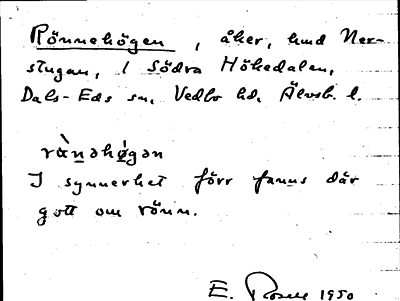 Rönnehögen, åker, hmd Ner-
stugan, i Södra Höhedalen,
Dals-Eds sn, Vedbo hd, Älvsb. l.
rὰnəhøgən
I synnerhet förr fanns där
gott om rönn.
E. Rosell 1950